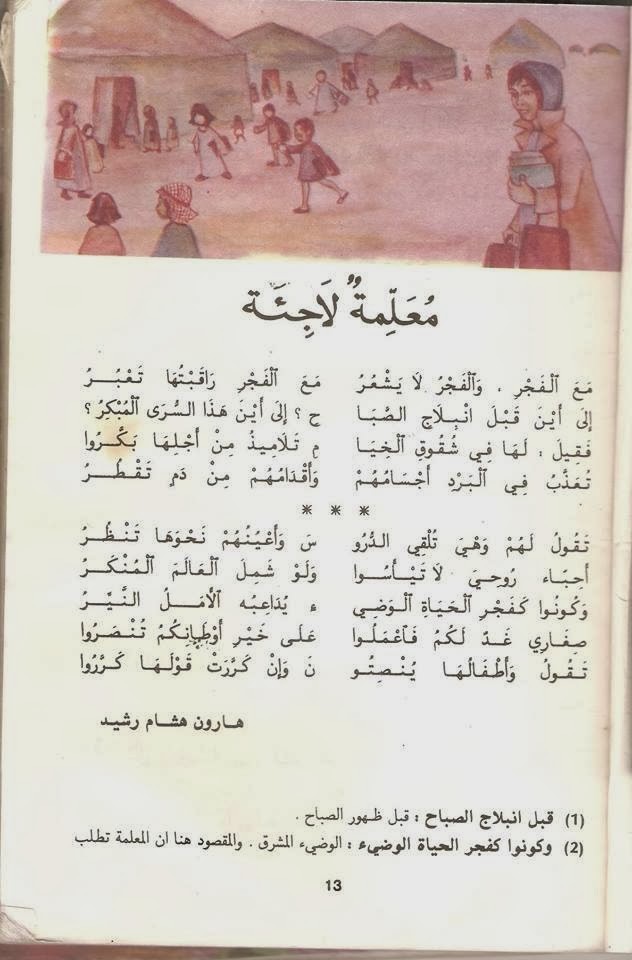 مُعَلِّمةٌ لاَجِئَة
مَعَ ٱلْفَجْرِ ، وَٱلْفَجْرُ لاَ يَشْعُرُ مَعَ ٱلْفَجْرِ رَاقَبْتُهَا تَعْبُرُ
إلَى أَيْنَ قَبْلَ انْبِلَاجِ الصَّبَا حِ ؟ إلَى أَيْنَ هَذَا السُّرَى ٱلْمُبْكِرُ ؟
فَقِيلَ : لَهَا فِي شُقُوقِ ٱلْخِيَا مِ تَلاَمِيذُ مِنْ أَجْلِهَا بَكَّرُوا
تُعَذَّبُ فِي ٱلْبَرْدِ أَجْسَامُهُمْ وَأَقْدَامُهُمْ مِنْ دَمٍ تَقْطُرُ
* * *
تَقُولُ لَهُمْ وَهْيَ تُلْقِي الدُّرُو سَ وَأَعْيُنُهُمْ نَحْوَهَا تَنْظُرُ
أَحِبَّاء رُوحِيَ لاَ تَيْأَسُوا وَلَوْ شَمِلَ ٱلْعَالَمَ ٱلْمُنْكَرُ
وَكُونُوا كَفَجْرِ ٱلْحَيَاةِ ٱلْوَضِي ءِ يُدَاعِبُه ٱلْأَمَلُ النَّيِّرُ
صِغَارِي غَدٌ لَكُمُ فَٱعْمَلُوا عَلَى خَيْرِ أَوْطَانِكُمُ تُنْصَرُوا
تَقُولُ وَأَطْفَالُهَا يُنْصِتُو نَ وَإنْ كَرَّرَتْ قَوْلَهَا كَرَّرُوا
هارون هشام رشيد
(1) قبل انبلاج الصباح : قبل ظهور الصباح .
(2) وكونوا كفجر الحياة الوضيء : الوضيء المشرق . والمقصود هنا ان المعلمة تطلب
13